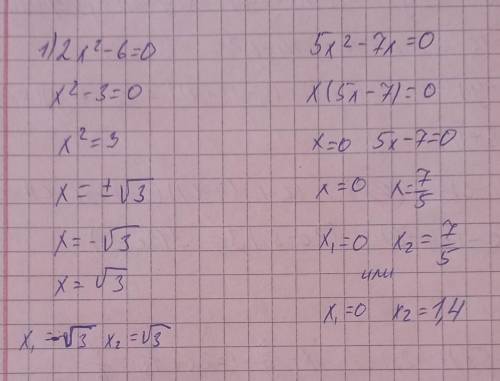 1) 2x²-6=0
x²-3=0
x²=3
x=±√3
x=-√3
x=√3
x₁=-√3 x₂=√3
5x²-7x=0
x(5x-7)=0
x=0 5x-7=0
x=0 x=7/5
x₁=0 x₂=7/5
или
x₁=0 x₂=1,4